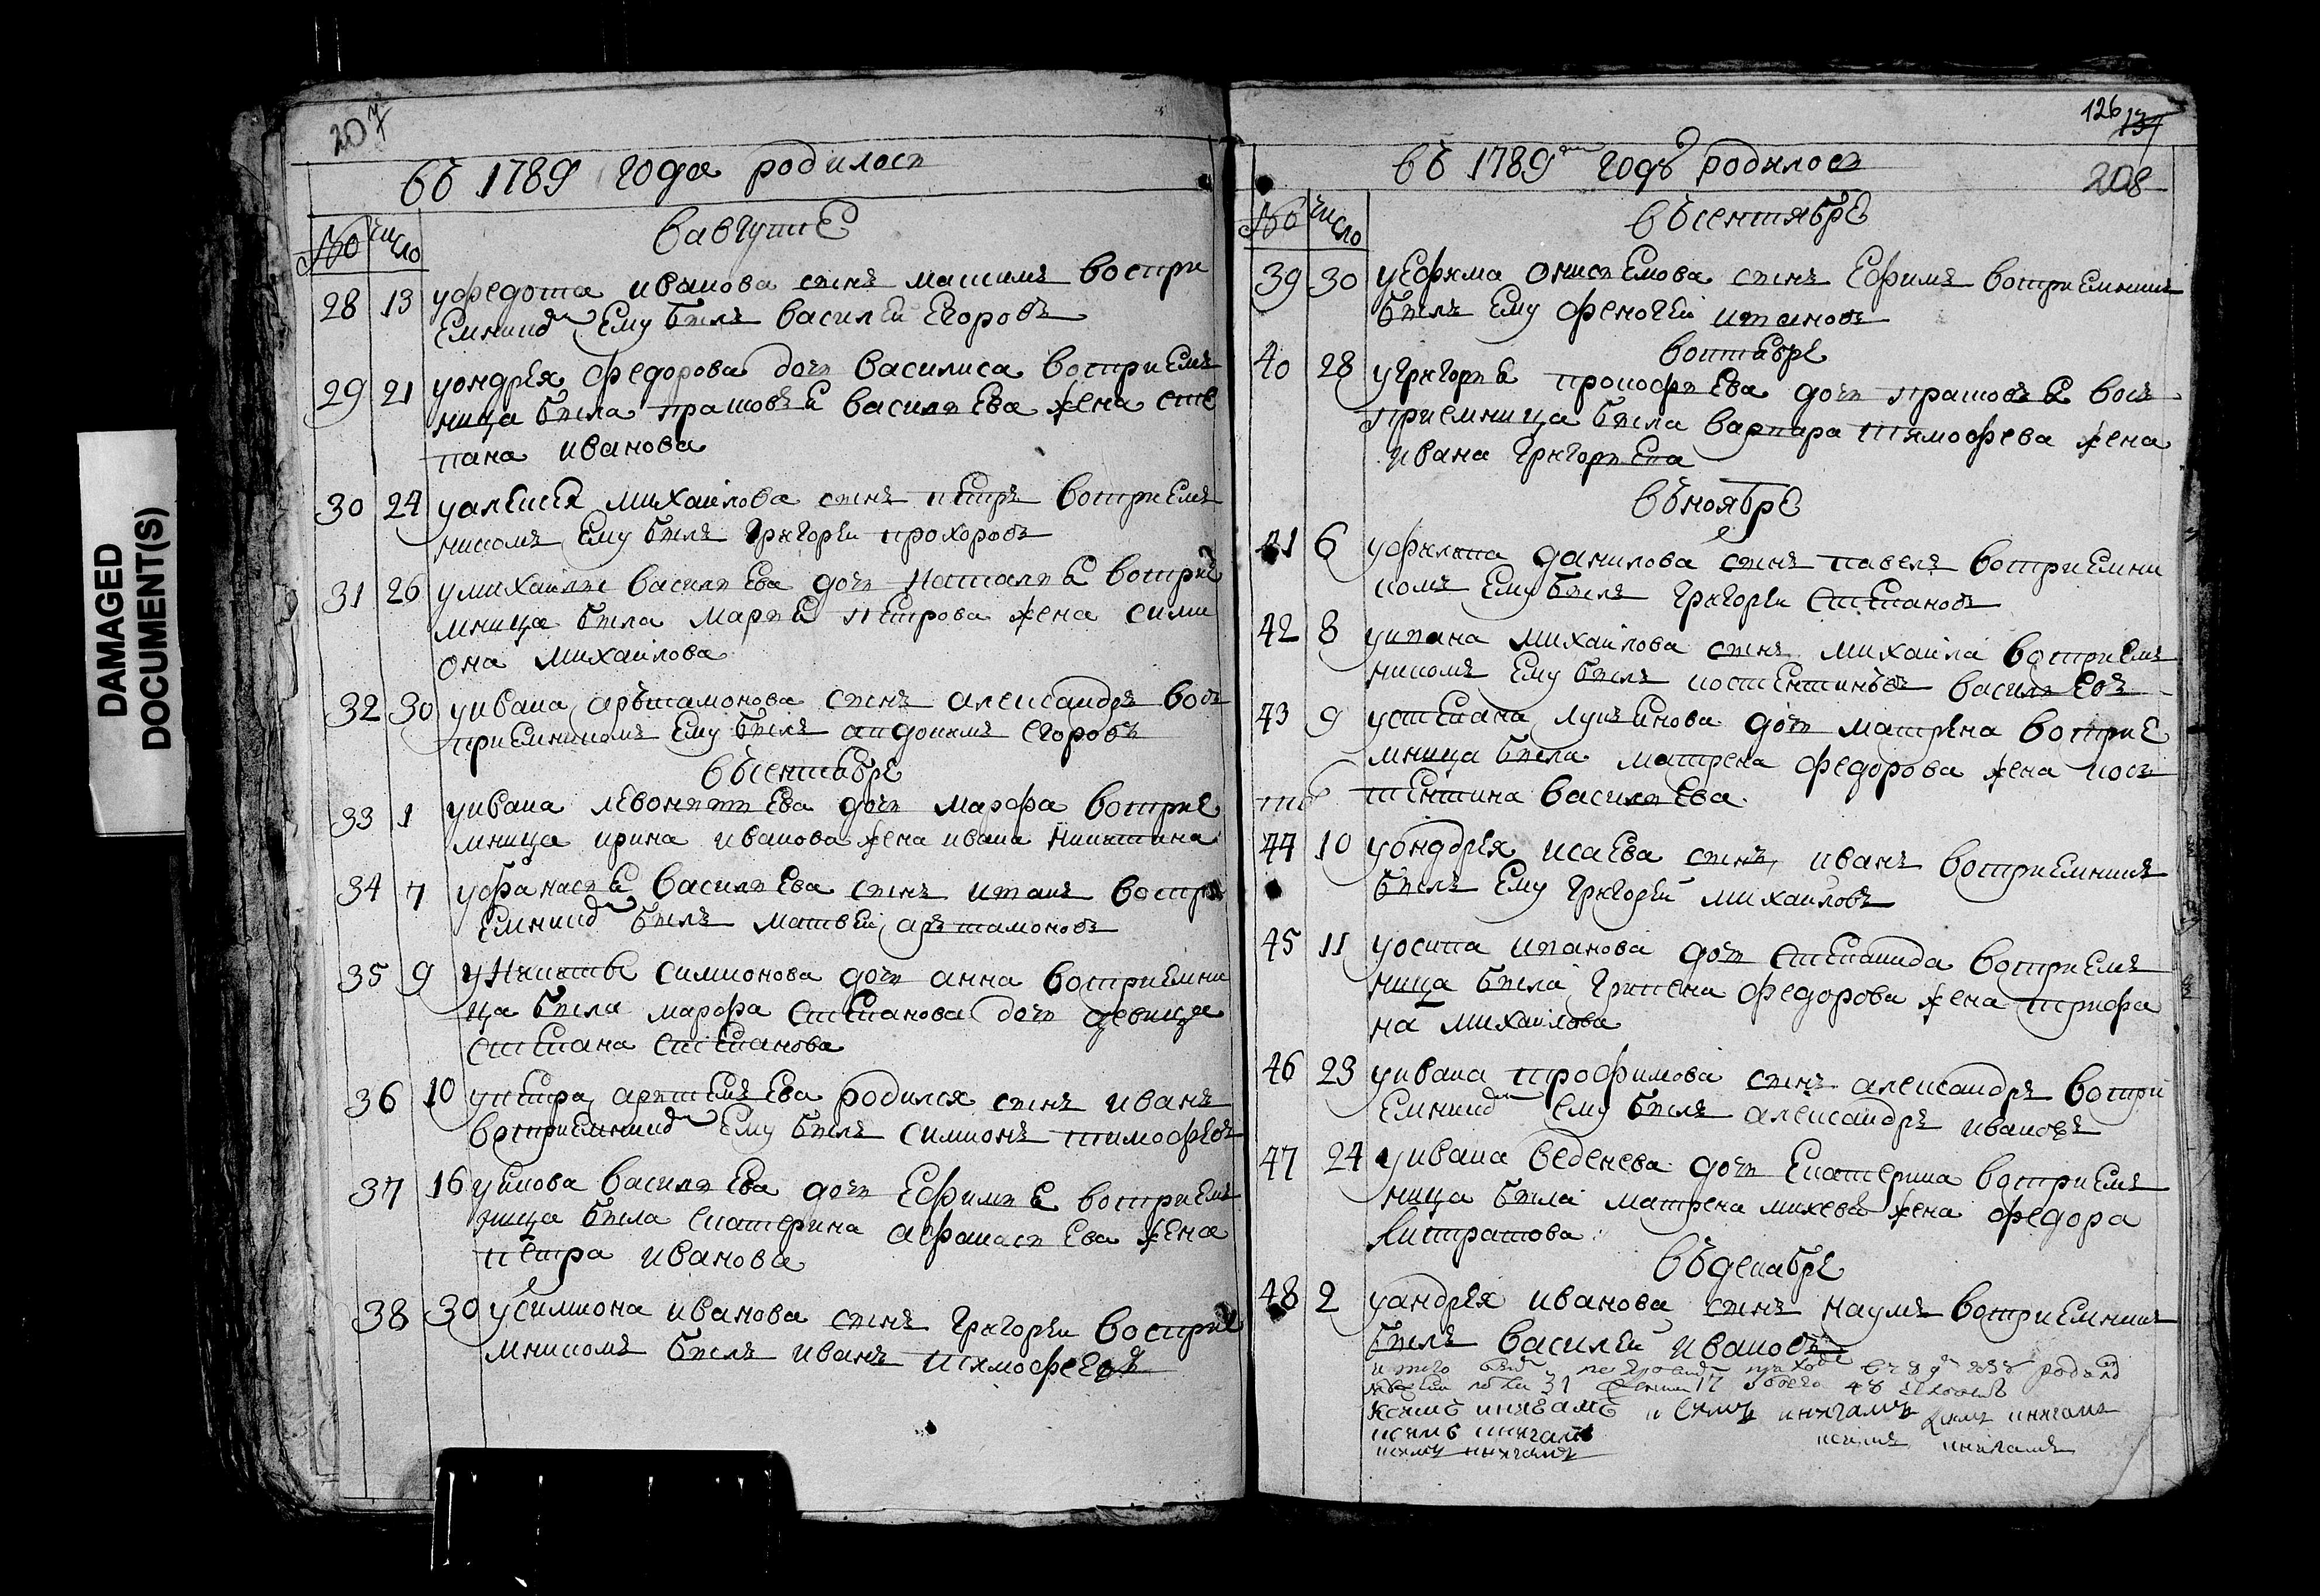 DAMAGED
DOCUMENT(S)
207
въ 1789 года родилось
№ число
вавгусте
28 13 уфедота иванова сынъ максимъ воспри
емникъ ему былъ василей егоровъ
29 21 уондрея федорова дочь василиса восприем
ница была прасковья васильева жена сте
пана иванова
30 24 уалексея михаилова сынъ петръ восприем
никомъ ему былъ григорей прохоровъ
31 26 умихаилы васильева дочь наталья восприе
мница была марья петрова жена сими
она михаилова
32 30 увана арътамонова сынъ александръ вос
приемникомъ ему былъ егоровъ
въсентябре
33 1 уивана левонтьева дочь марфа восприе
мница ирина иванова жена ивана никитина
34 7 уфанасья васильева сынъ иванъ воспри
емникъ былъ матвей артамоновъ
35 9 уникиты симионова дочь анна восприемни
ца была марфа степанова дочь девица
степана степанова
36 10 упетра артемьева родился сынъ иванъ
восприемникъ ему былъ симионъ тимофеевъ
37 16 уиева васильева дочь ефимья восприем
ница была екатерина афанасьева жена
петра иванова
38 30 усимиона иванова сынъ григорей воспрie
мникомъ былъ иванъ тимофеевъ
126 137
въ 1789м годъ родилось
208
№ число
въсентябре
39 30 уефима онисемова сынъ ефимъ восприемникъ
былъ ему феногей
воктябре
40 28 угригорья прокофьева дочь прасковья вос
приемница была варвара тимофева жена
ивана григорьева
въноябре
41 6 уфилипа данилова сынъ павелъ восприемни
комъ ему былъ григорей степановъ
42 8 михаилова сынъ михаила восприем
никомъ ему былъ костентинъ васильевъ
43 9 устепана лукьянова дочь матрена восприе
мница была матрена федорова жена кос
тентина васильева
44 10 уондрея исаева сынъ иванъ восприемникъ
былъ ему григорей михаиловъ
45 11 уосипа дочь степанида восприем
ница была федорова жена трифа
на михаилова
46 23 уивана трофимова сынъ александръ воспри
емникъ ему былъ александръ ивановъ
47 24 уивана веденева дочь екатерина восприем
ница была матрена михева жена федора
въдекабре
48 2 уандрея иванова сынъ наумъ восприемникъ
былъ василей ивановъ
31 17 48
ксимъ книгамъ
ксимъ книгамъ